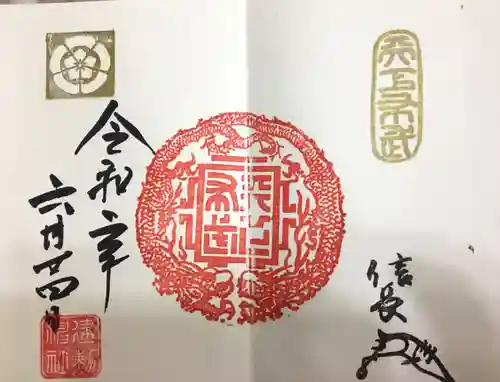 天下布武
信長
天下布武
令和元年
六月廿四日
建勲
神社